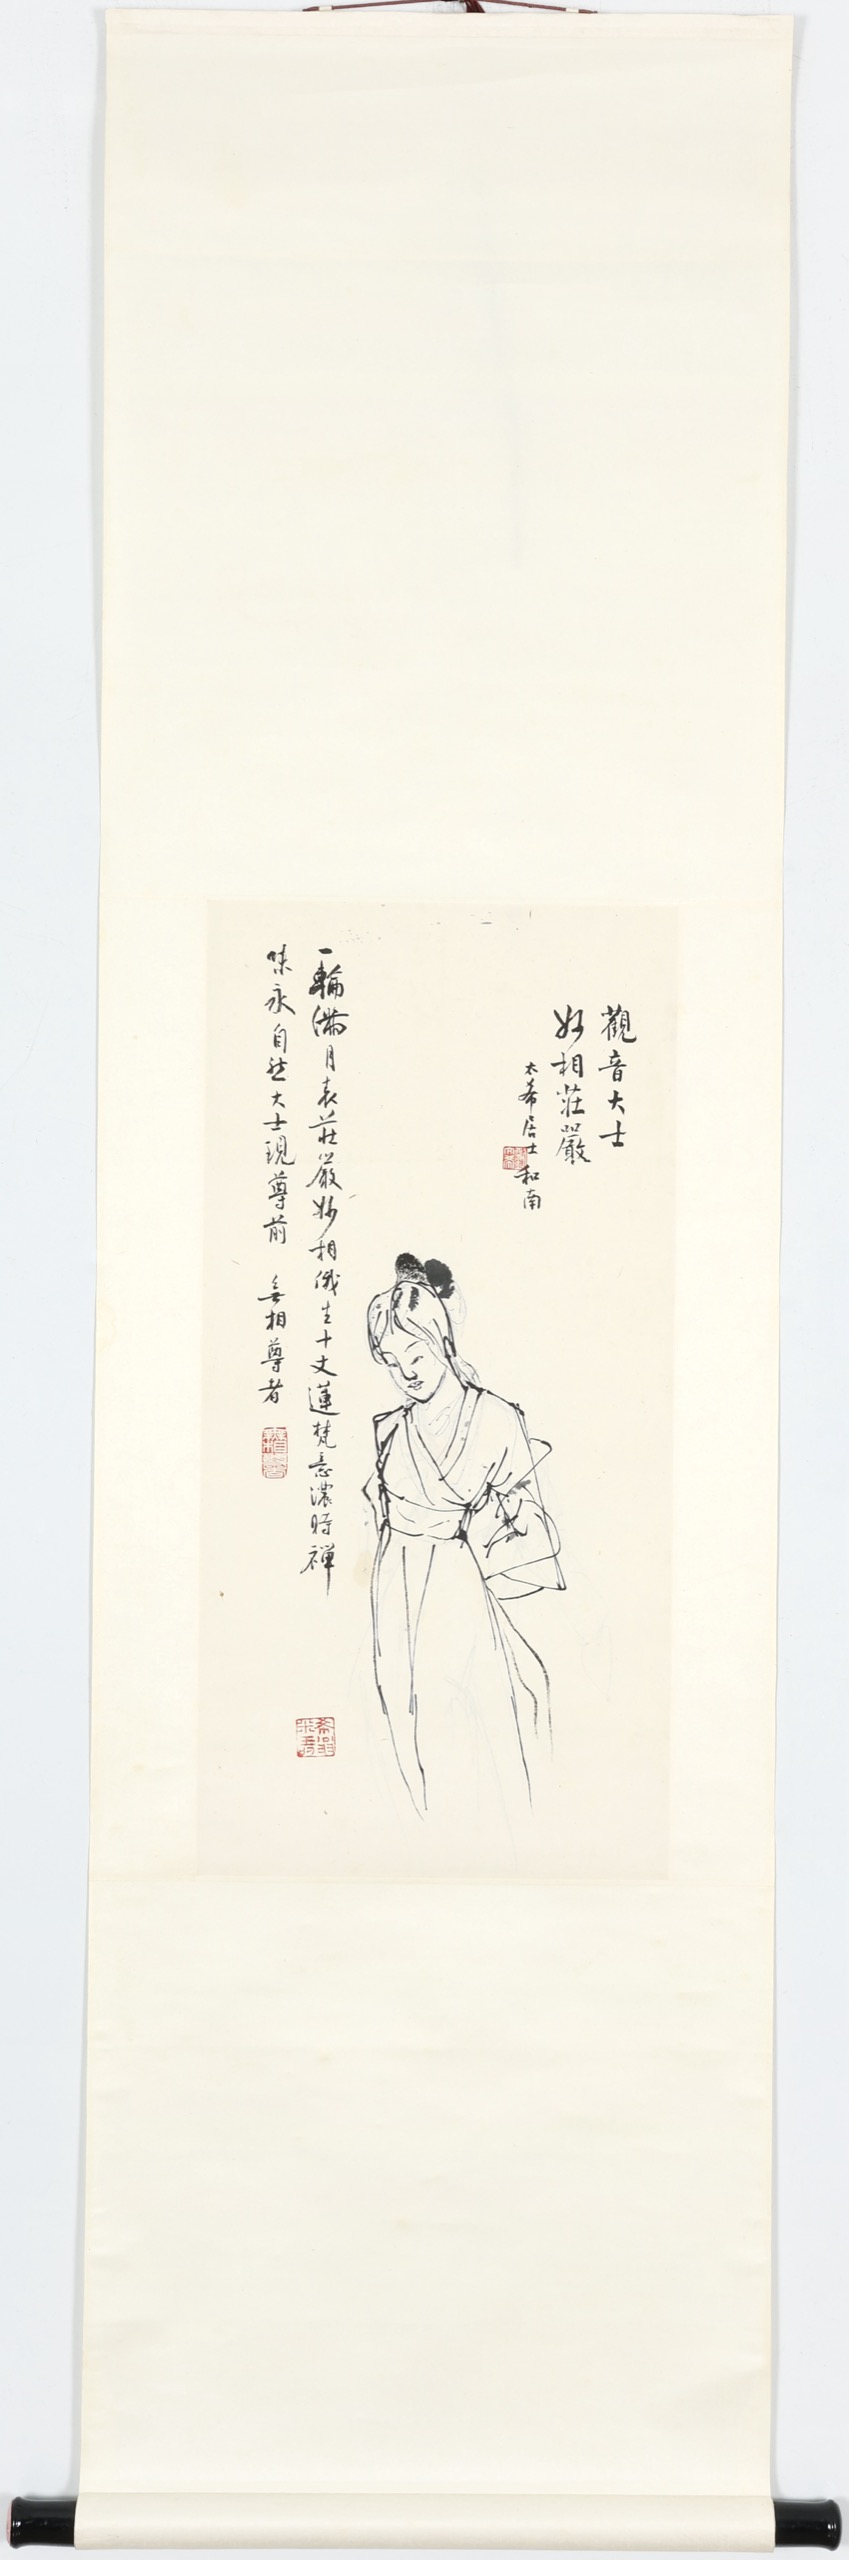 觀音大士
妙相莊嚴
太希居士和南
一輪滿月表莊嚴妙相俄生十丈蓮梵意濃時禪
味永自然大士現尊前
無相尊者